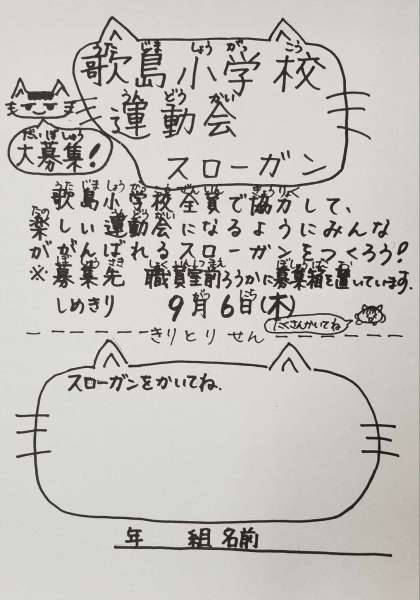 歌島小学校
運動会
スローガン
大募集!
歌島小学校全員で協力して、
楽しい運動会になるようにみんな
ががんばれるスローガンをつくろう!
※募集先 職員室前ろうかに募集箱を置いています。
しめきり 9月6日(木)
たくさんかいてね
きりとりせん
スローガンをかいてね.
年 組 名前